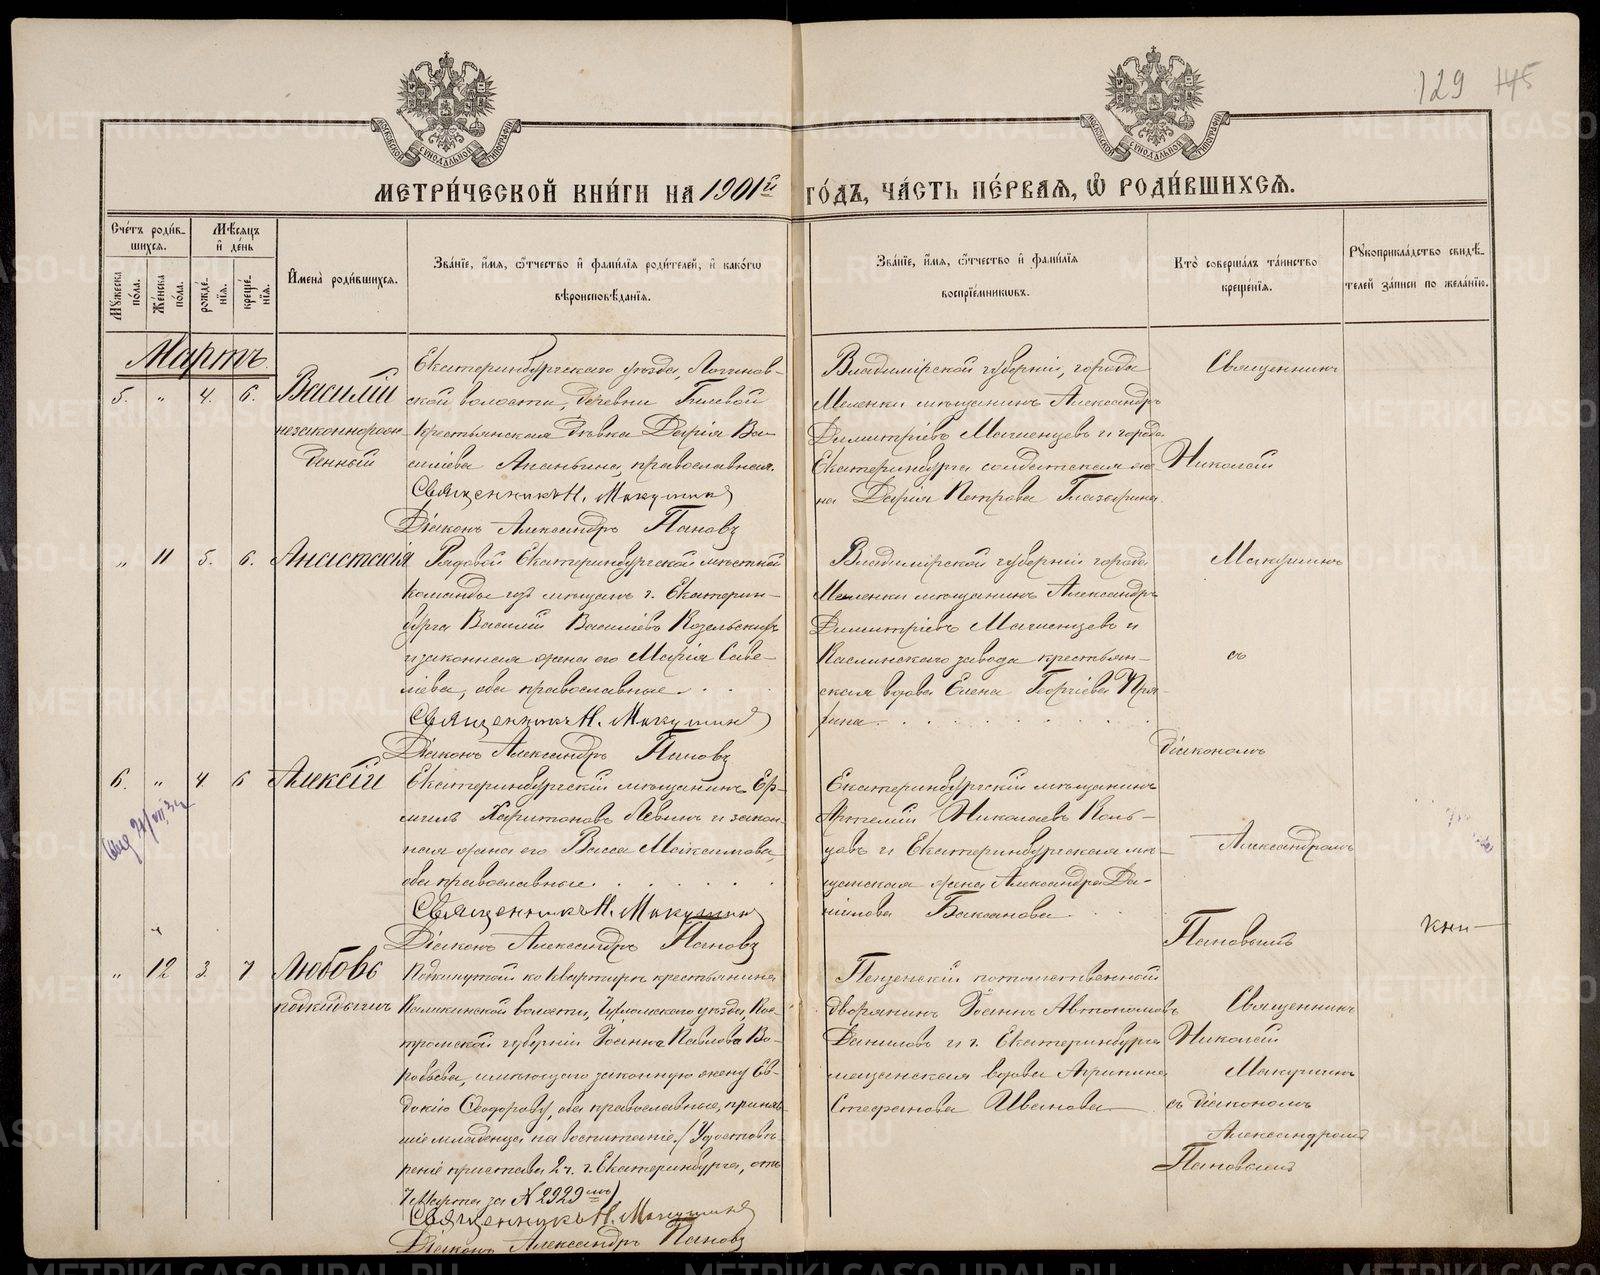 129 145
МЕТРИ́ЧЕСКОЙ КНИ́ГИ НА 1901й ГО́ДЪ, ЧА́СТЬ ПЕ́РВАЯ, Ѡ РОДИ́ВШИХСЯ.
Сче́тъ роди́в-
шихся.
Му́жеска по́ла.
Же́нска по́ла.
Мѣ́сяцъ
и де́нь
рожде́нія.
креще́нія.
Имена̀ роди́вшихся.
Зва́ніе, и́мя, о́тчество и фами́лія роди́телей, и како́гѡ
вѣроисповѣ́данія.
Зва́ніе, и́мя, о́тчество и фами́лія
воспріе́мникѡвъ.
Кто̀ соверша́лъ та́инство
креще́нія.
Рукоприкла́дство свидѣ́-
телей за́писи по жела́нію.
Мартъ
5. " 4. 6.
Василій
незаконнорож-
денный
Екатеринбургскаго уѣзда, Логинов-
ской волости, деревни Гилевой
крестьянская дѣвка Дарія Ва-
силіева Ананьина, православная.
Священникъ Н. Макушинъ
Діаконъ Александръ Пановъ
Владимірской губерніи, города
Меленки мѣщанинъ Александръ
Димитріевъ и города
Екатеринбурга солдатская же-
на Дарія Петрова
Священникъ
Николай
" 11 5. 6.
Анастасія
Рядовой Екатеринбургской мѣстной
команды изъ мѣщанъ г. Екатерин-
бурга Василій Василіевъ Козельскихъ
и законная жена его Марія Саве-
ліева, оба православные.
Священникъ Н. Макушинъ
Діаконъ Александръ Пановъ
Владимірской губерніи города
Меленки мѣщанинъ Александръ
Димитріевъ и
Каслинскаго завода крестьян-
ская вдова Елена Георгіева
Макушинъ
съ
діакономъ
6. " 4. 6
Алексій
Екатеринбургскій мѣщанинъ Ер-
милъ Харитоновъ Левинъ и закон-
ная жена его Васса Максимова,
оба православные.
Священникъ Н. Макушинъ
Діаконъ Александръ Пановъ
Екатеринбургскій мѣщанинъ
Артемій Николаевъ
и Екатеринбургская мѣ-
щанская жена Александра Да-
нилова Баканова
Александромъ
Пановымъ
" 12 3. 7.
Любовь
подкидышъ
Подкинутой ко квартирѣ крестьянина
волости, Чухломскаго уѣзда, Кос-
тромской губерніи Іоанна Павлова Во-
робьева, имѣющаго законную жену Ев-
докію Ѳеодорову, оба православные, приняв-
шіе младенца на воспитаніе. (Удостовѣ-
реніе пристава 2 ч. г. Екатеринбурга, отъ
7 Марта за № 2929мъ)
Священникъ Н. Макушинъ
Діаконъ Александръ Пановъ
Пензенскій потомственный
дворянинъ Іоаннъ Автономовъ
Даниловъ и г. Екатеринбурга
мещанская вдова Агрипина
Стефанова Иванова
Священникъ
Николай
Макушинъ
съ діакономъ
Александромъ
Пановымъ
кни-
METRIKI.GASO-URAL.RU